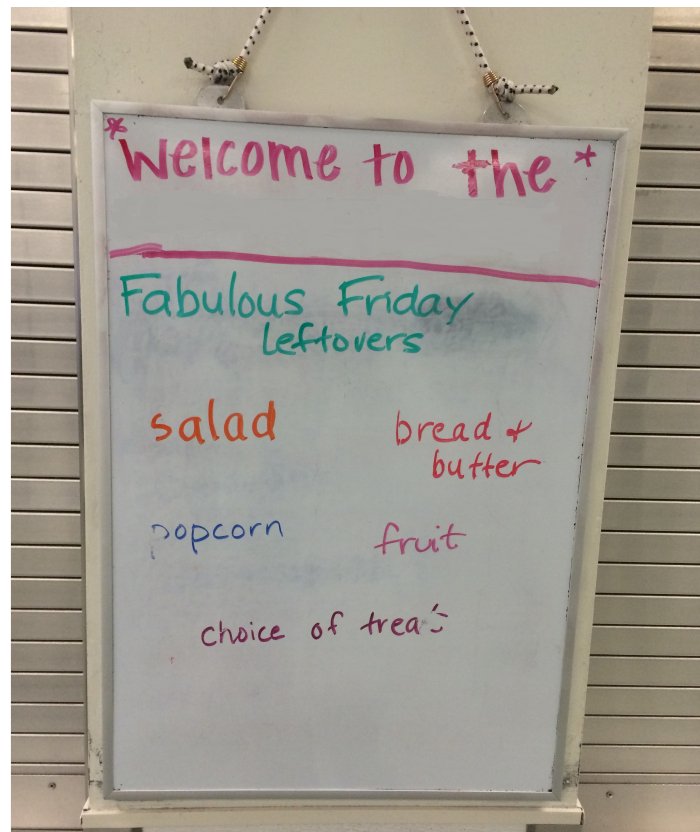 *Welcome to the*
Fabulous Friday
leftovers
salad
bread &
butter
popcorn
fruit
choice of